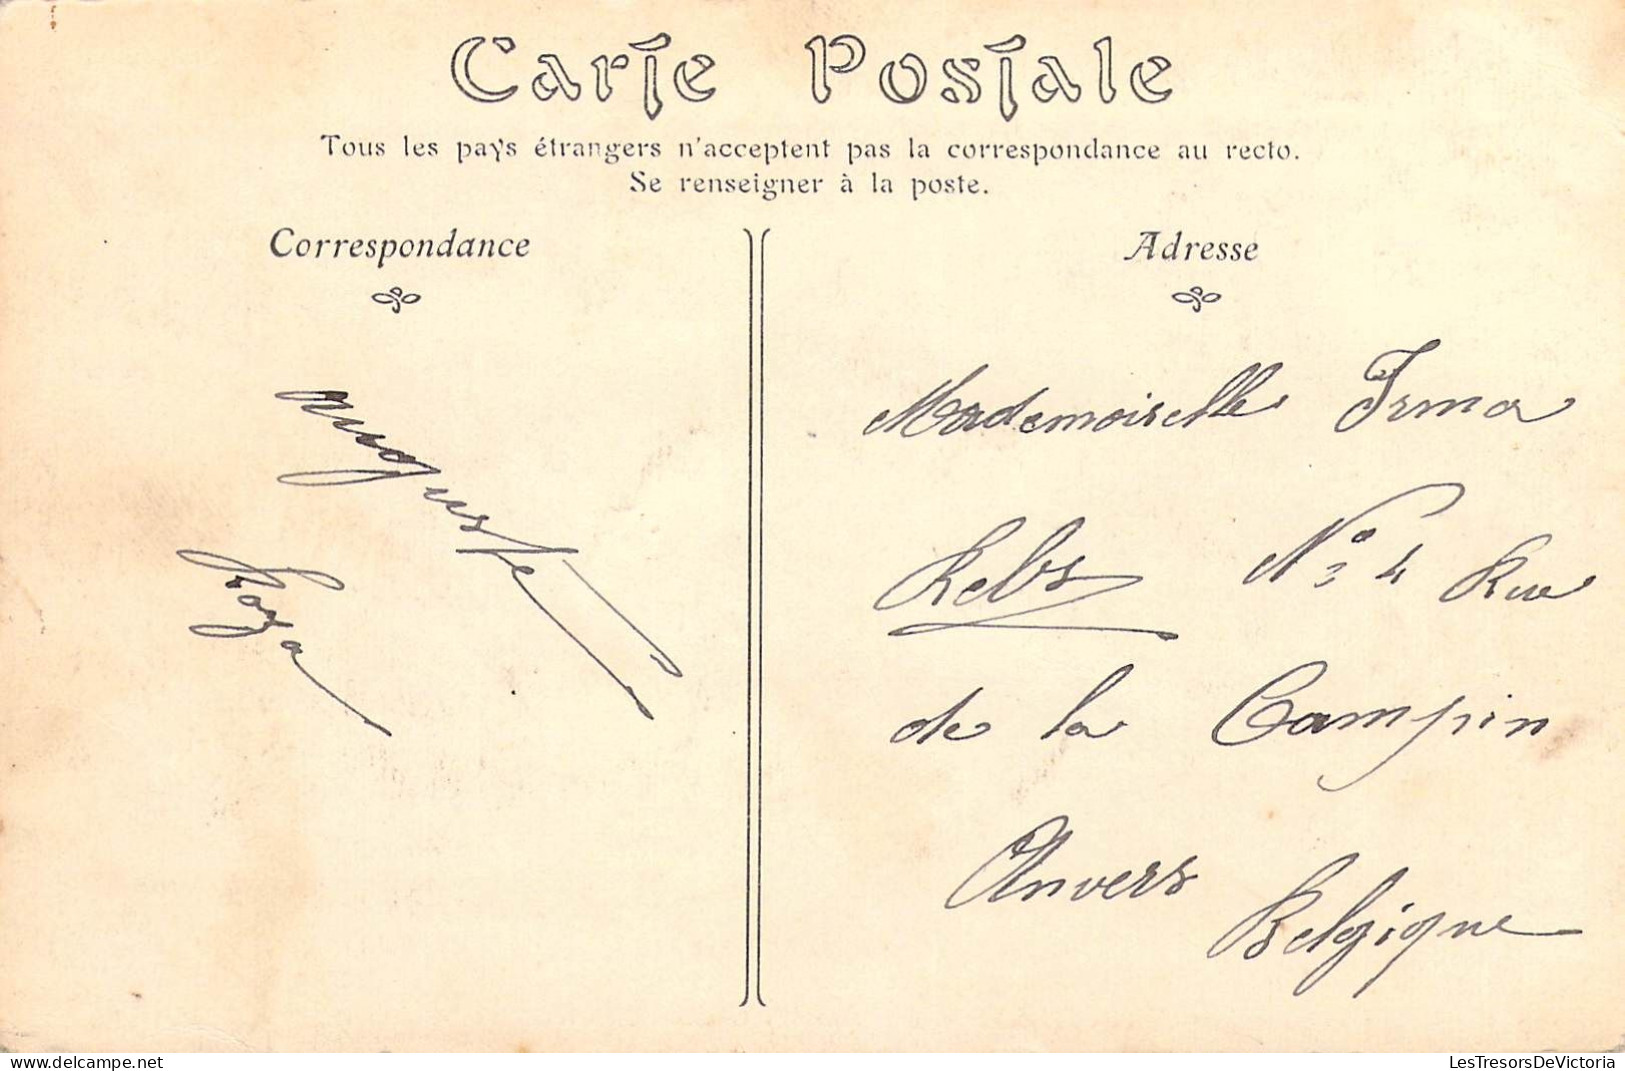 Carte Postale
Tous les pays étrangers n'acceptent pas la correspondance au recto.
Se renseigner à la poste.
Correspondance
Adresse
auguste
Mademoiselle Irma
Rebs N° 4 Rue
de la Campin
Anvers
Belgique
delcampe.net
LesTresorsDeVictoria